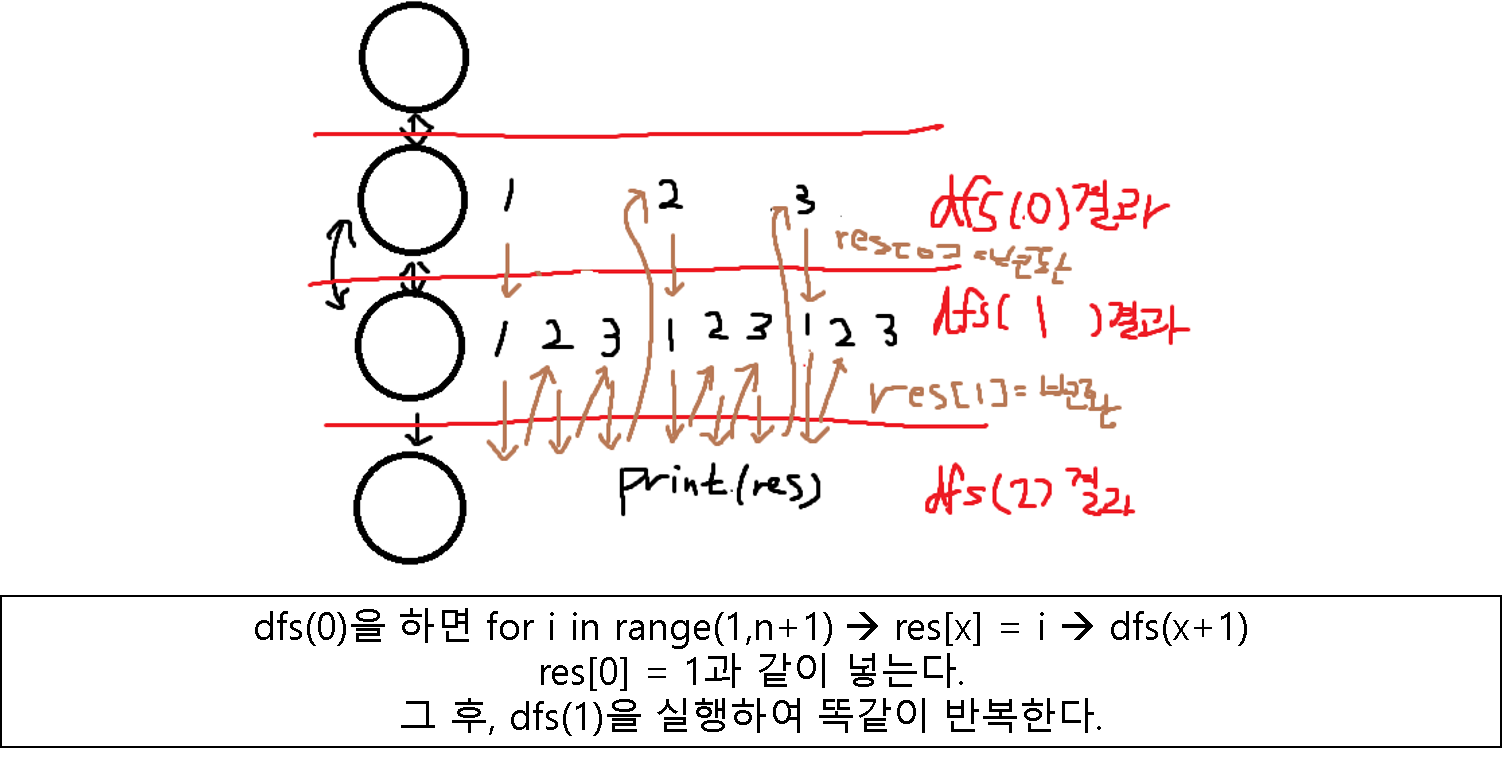 1 2 3
dfs(0)결과
res[0]=변환
1 2 3 1 2 3 1 2 3
dfs( 1 )결과
res[1]=변환
print(res)
dfs(2)결과
dfs(0)을 하면 for i in range(1,n+1) → res[x] = i → dfs(x+1)
res[0] = 1과 같이 넣는다.
그 후, dfs(1)을 실행하여 똑같이 반복한다.